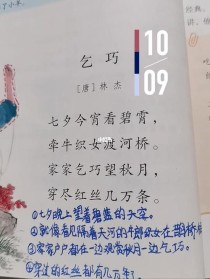 乞巧
10
09
[唐]林杰
七夕今宵看碧霄，
牵牛织女渡河桥。
家家乞巧望秋月，
穿尽红丝几万条。
①七夕晚上望着碧蓝的天空。
②就像看见隔着天河的牛郎织女在鹊桥
③家家户户都在一边观赏秋月一边乞巧。
④穿过的红丝都有几万条了